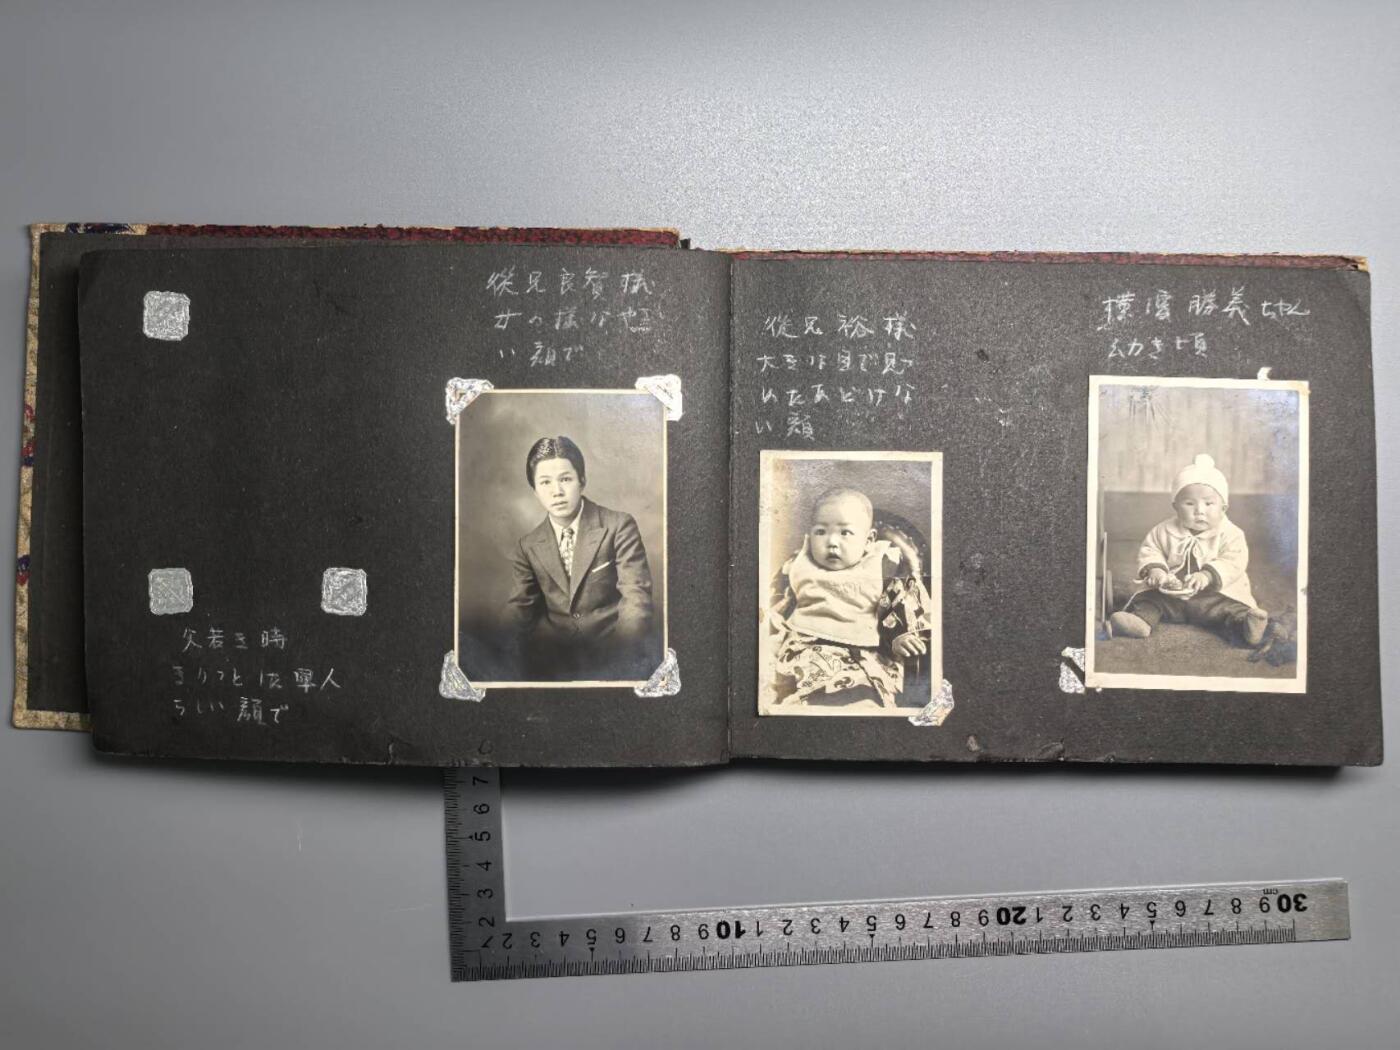 従兄良智様
女の様なやさし
い顔で
父若き時
きりつとした軍人
らしい顔で
従兄裕様
大きな目で見
めたあどけな
い顔
横濱勝義ちやん
幼き頃
2 3 4 5 6 7
2 3 4 5 6 7 8 9 10 1 2 3 4 5 6 7 8 9 20 1 2 3 4 5 6 7 8 9 30
cm